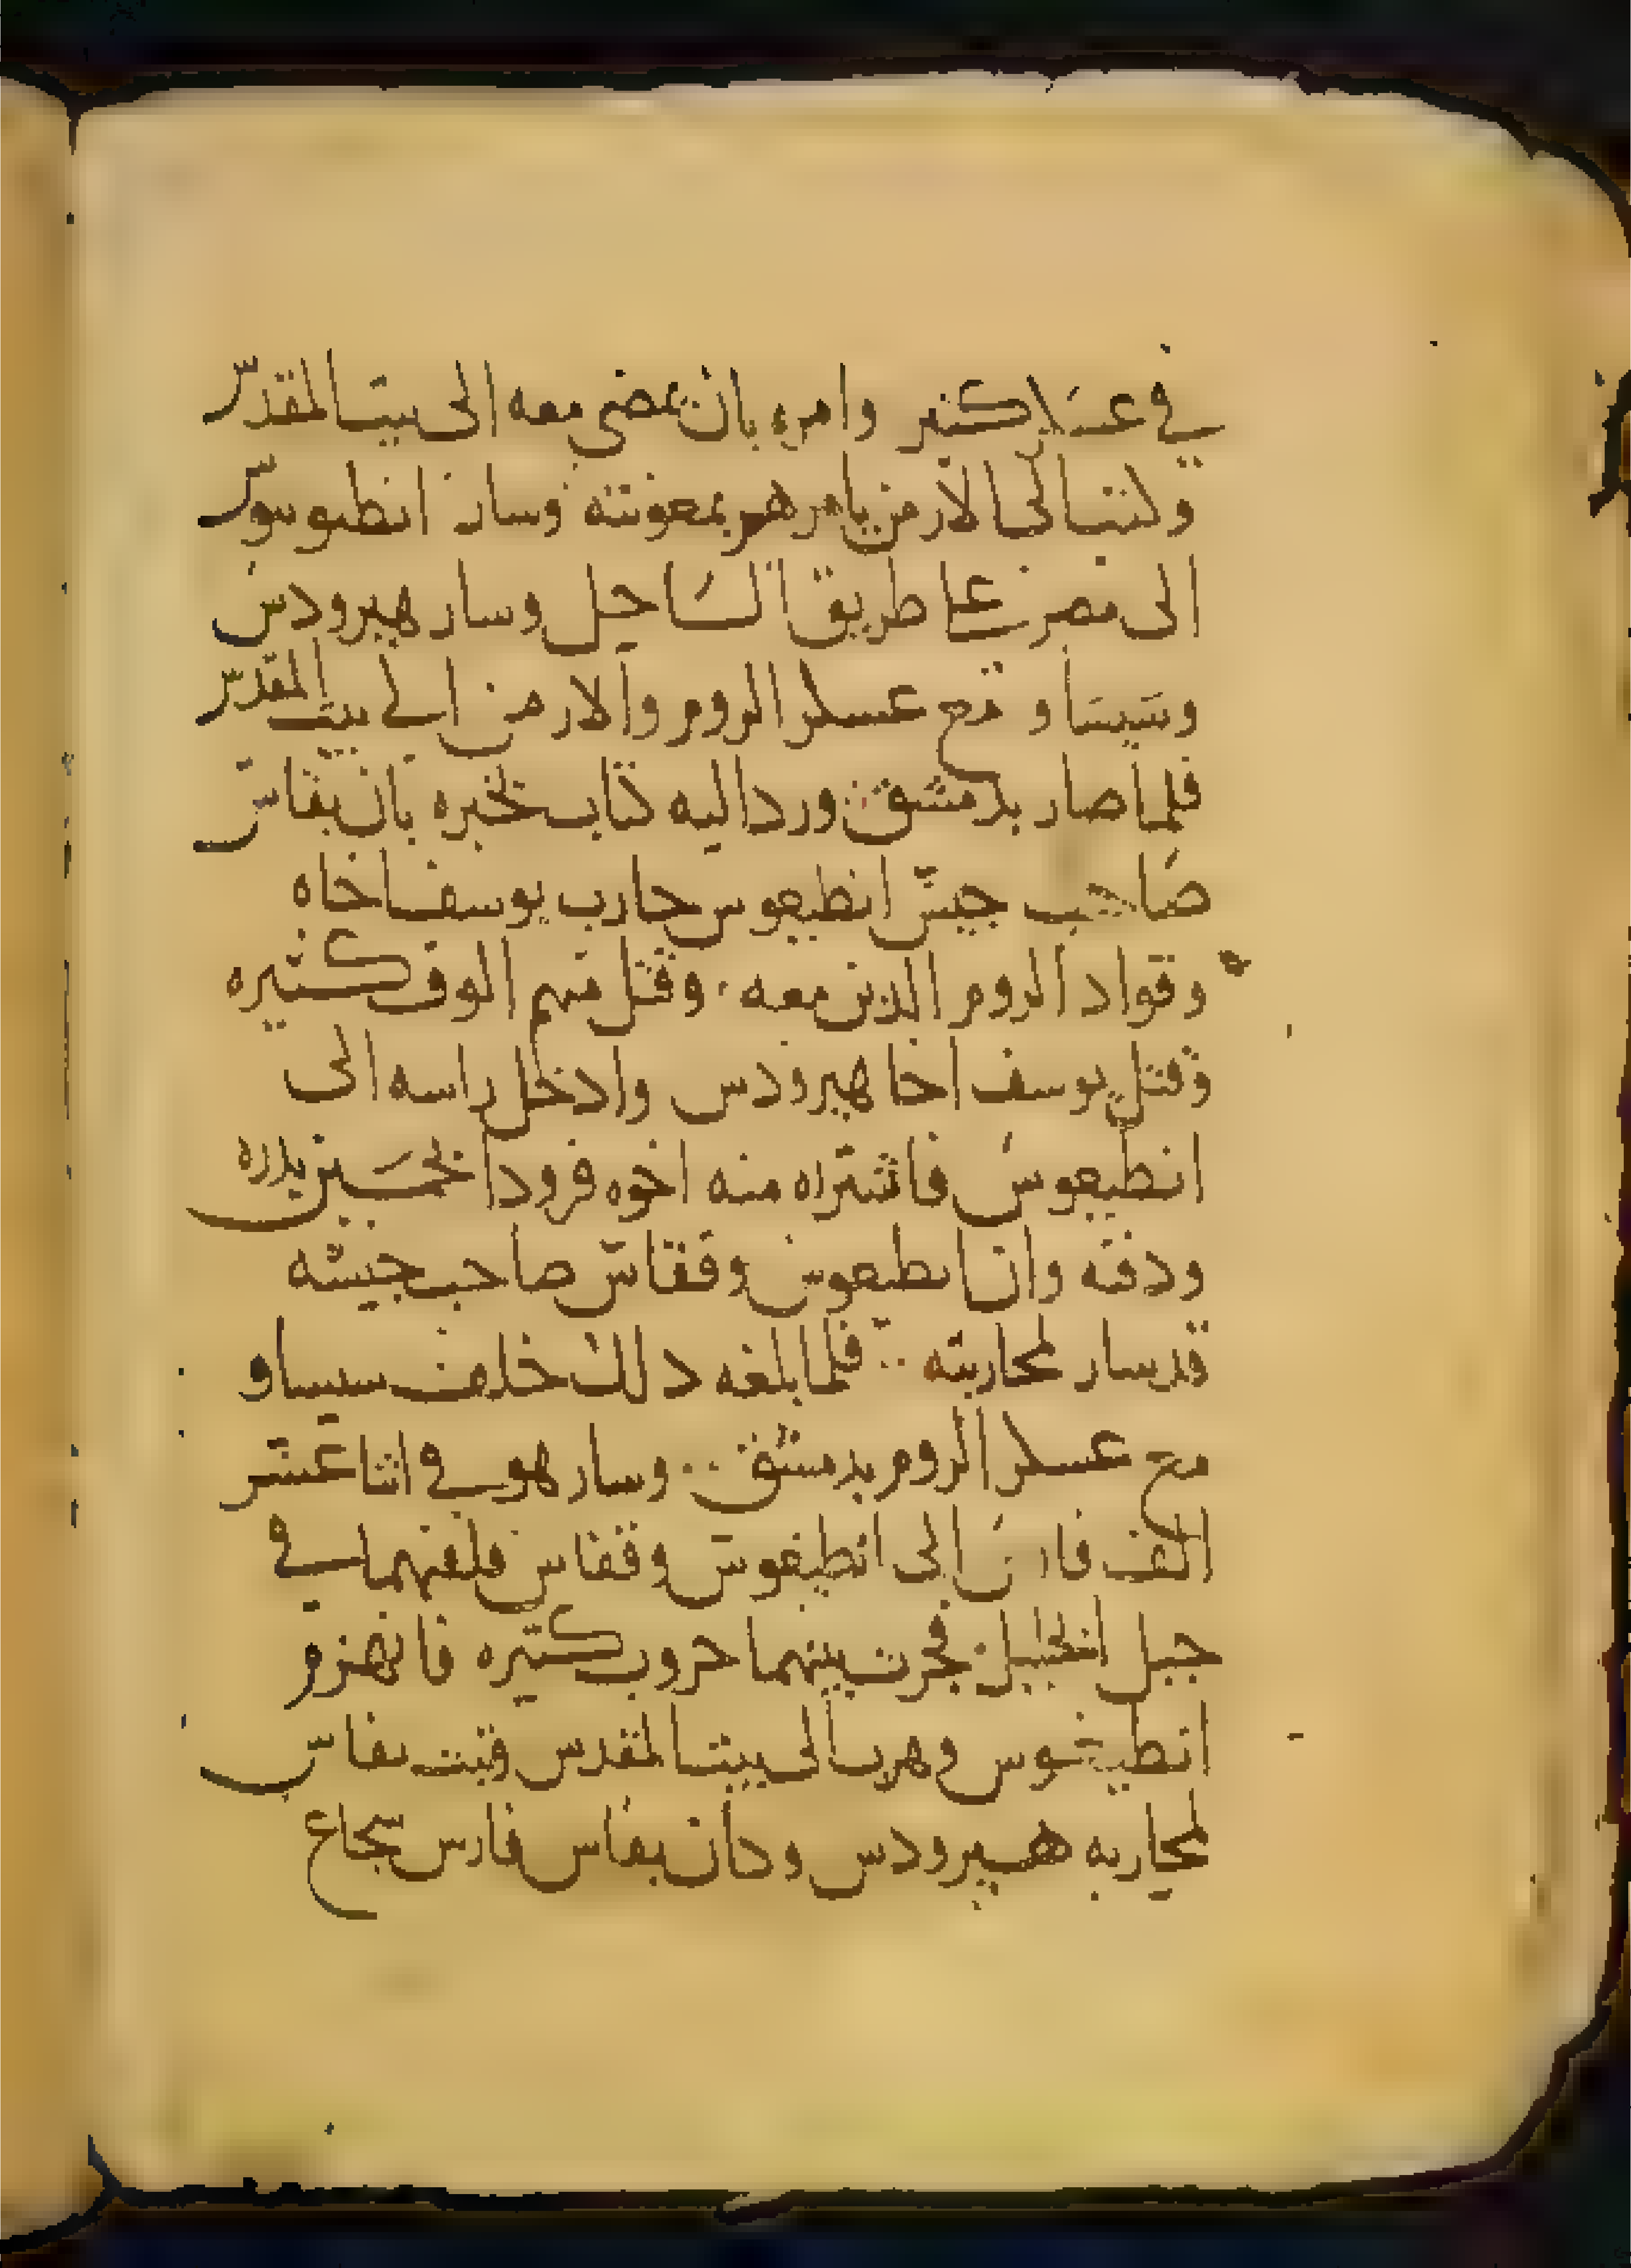 في عسكر كثير وامره بان يمضي معه الى بيت المقدس
وكتب الى الارمن يامرهم بمعونته وسار انطيوس
الى مصر على طريق الساحل وسار هيرودس
وسيساو مع عسكر الروم والارمن الى بيت المقدس
فلما صار بدمشق ورد اليه كتاب يخبره بان بفاس
صاحب جيش انطيعوس حارب يوسف اخاه
وقواد الروم الذين معه وقتل منهم الوف كثيره
وقتل يوسف اخا هيرودس وادخل راسه الى
انطيعوس فاشتراه منه اخوه فرودا بخمسين بدره
ودفنه وان انطيعوس وفقاس صاحب جيشه
قد سار لمحاربته فلما بلغه دلك خلف سيساو
مع عسكر الروم بدمشق وسار هو في اثنا عشر
الف فارس الى انطيغوس وفقاس فلقيهما في
جبل الجليل فجرت بينهما حروب كثيره فانهزم
انطيخوس وهرب الى بيت المقدس وثبت بفاس
لمحاربه هيرودس وكان بفاس فارس شجاع